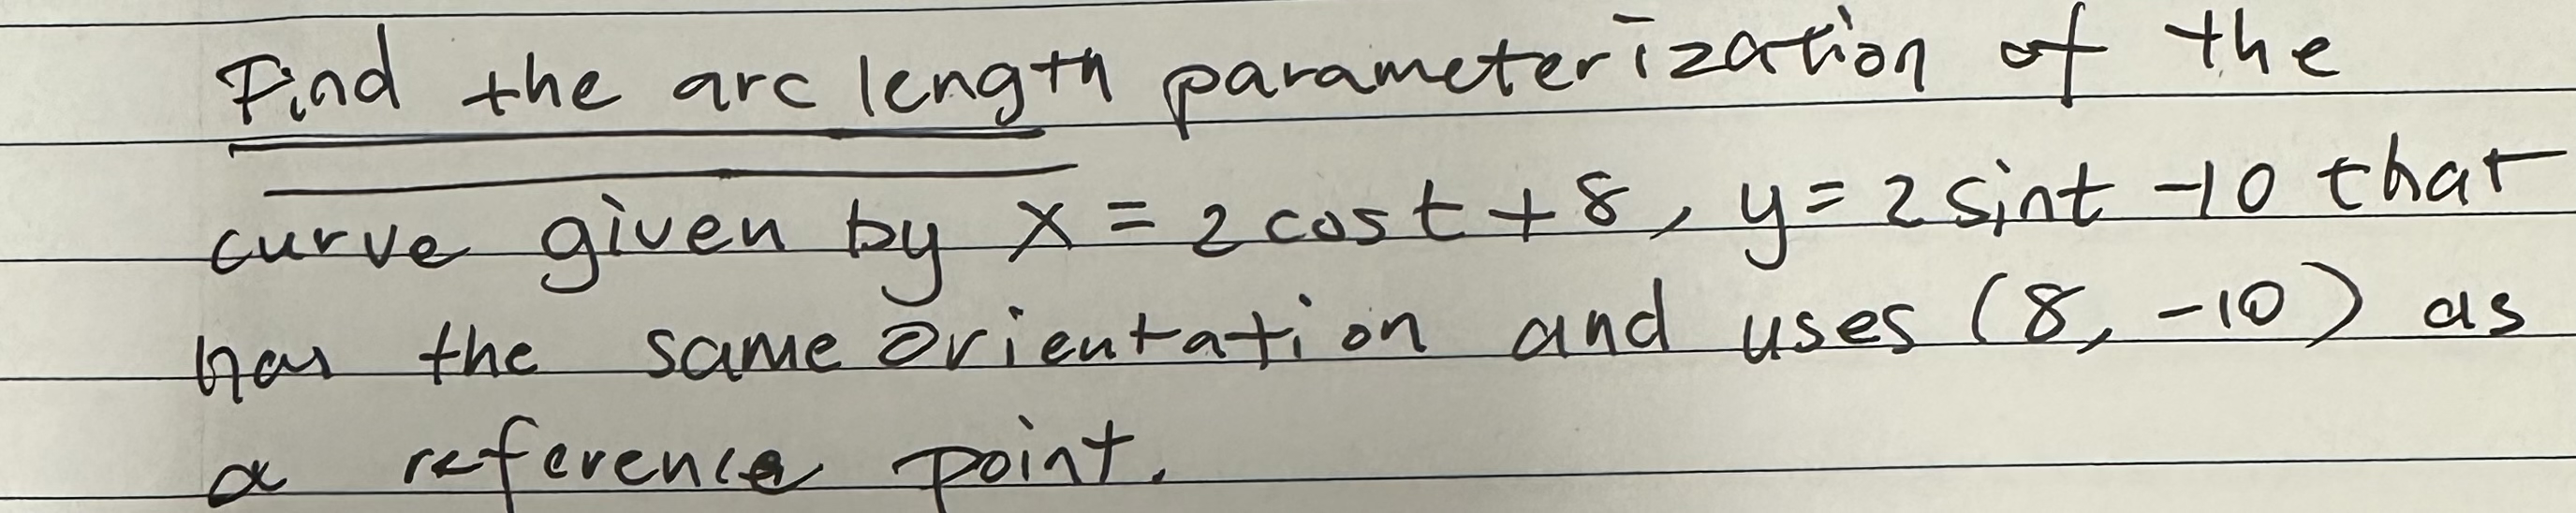 Find the arc length parameterization of the
curve given by x = 2 cos t + 8, y = 2 sint -10 that
has the same orientation and uses (8, -10) as
a reference point.